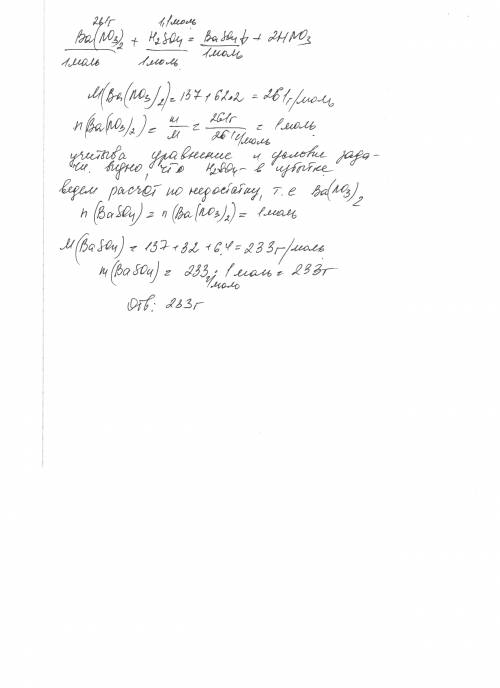 261г 1,1 моль
Ba(NO3)2 + H2SO4 = BaSO4↓ + 2HNO3
1 моль 1 моль 1 моль
M(Ba(NO3)2) = 137 + 62·2 = 261 г/моль
n(Ba(NO3)2) = m/M = 261г/261г/моль = 1 моль
учитыва уравнение и условие зада-
чи. видно, что H2SO4 - в избытке
ведем расчет по недостатку, т.е Ba(NO3)2
n(BaSO4) = n(Ba(NO3)2) = 1 моль
M(BaSO4) = 137 + 32 + 64 = 233 г/моль
m(BaSO4) = 233 г/моль · 1 моль = 233г
Отв: 233г